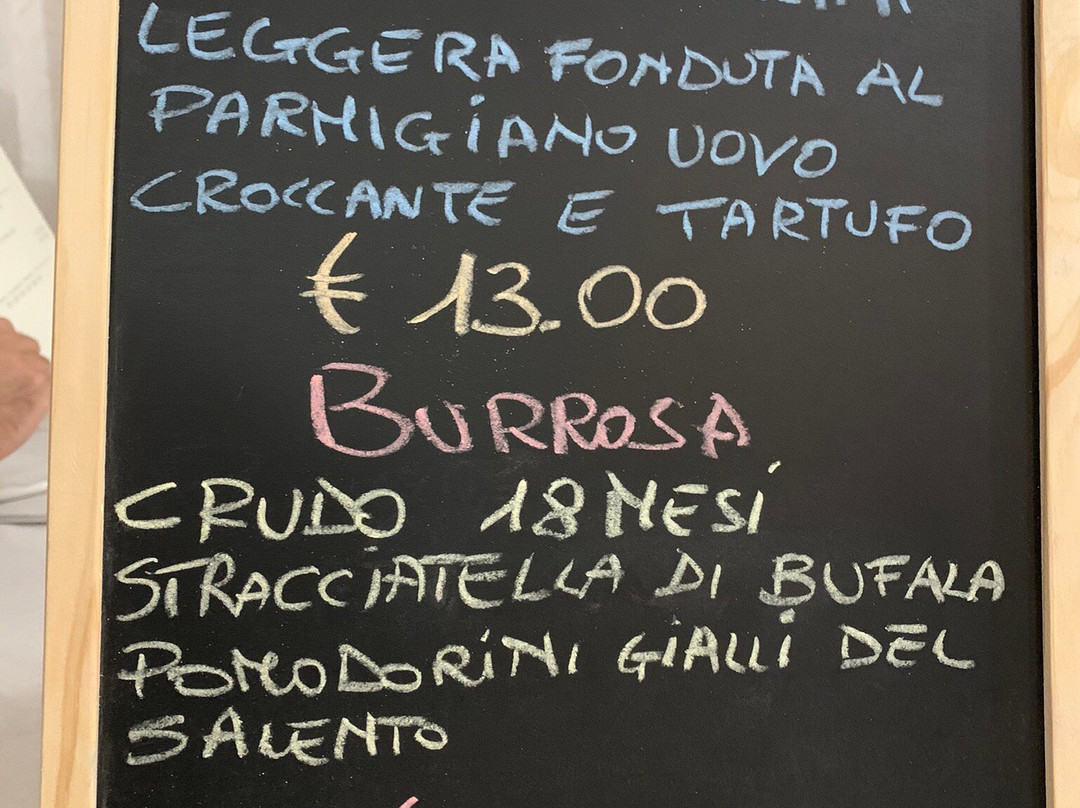 LEGGERA FONDUTA AL
PARMIGIANO UOVO
CROCCANTE E TARTUFO
€ 13.00
BURROSA
CRUDO 18 MESI
STRACCIATELLA DI BUFALA
POMODORINI GIALLI DEL
SALENTO